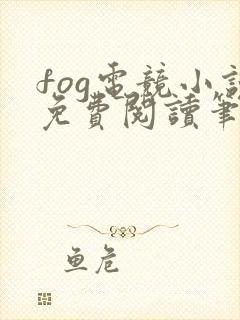 fog電競小說
免費閱讀筆
鱼危